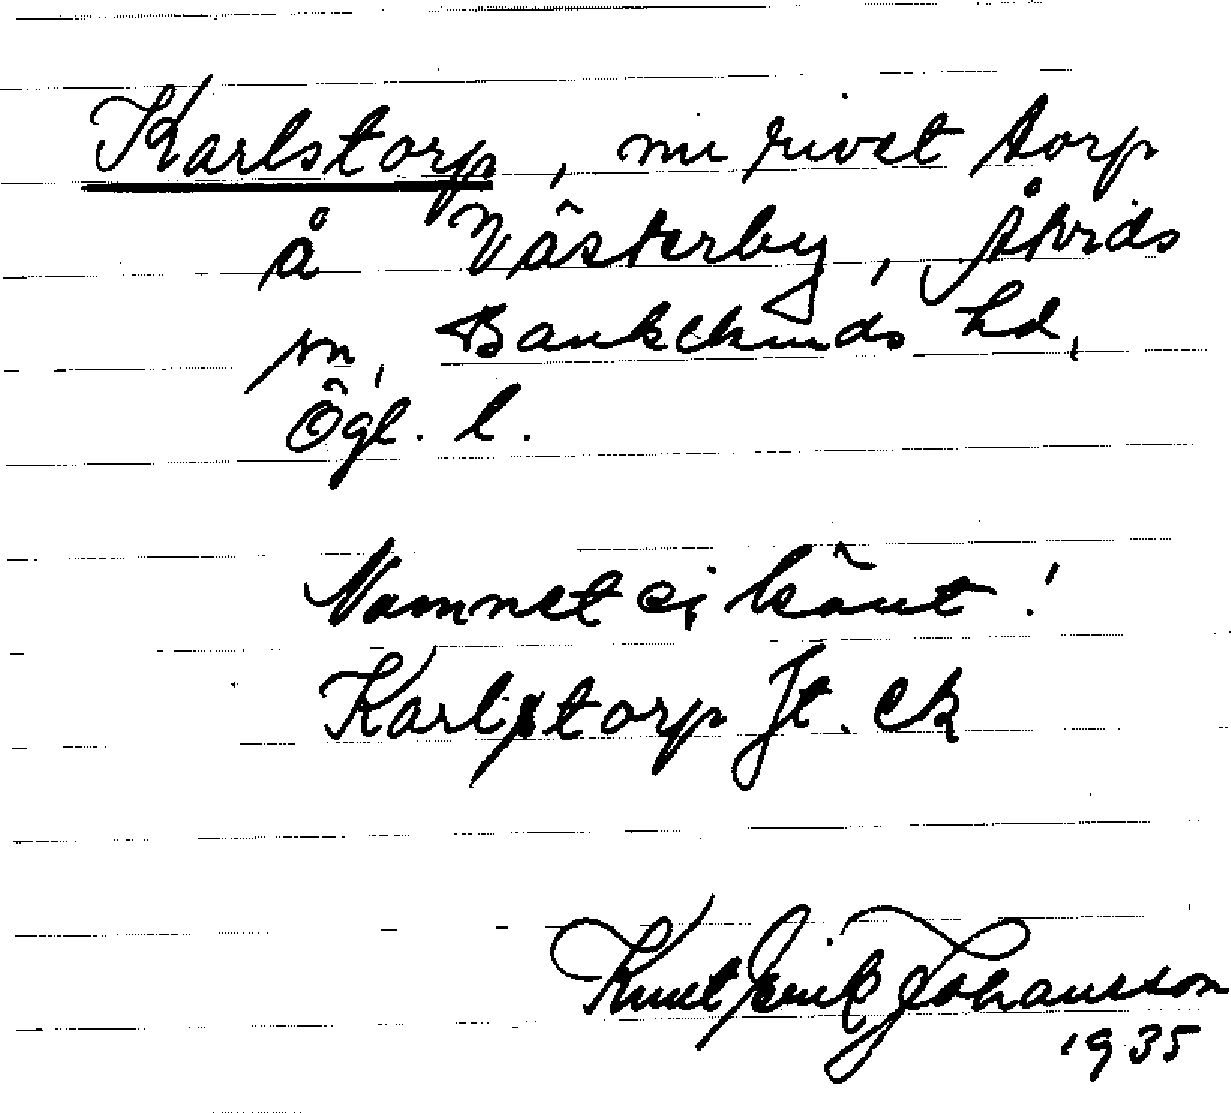 Karlstorp, nu rivet torp
å Västerby, Åtvids
sn, Bankekinds hd,
Ögl. l.
Namnet ej känt!
Karlstorp Jt. ek
Knut Erik Johansson
1935